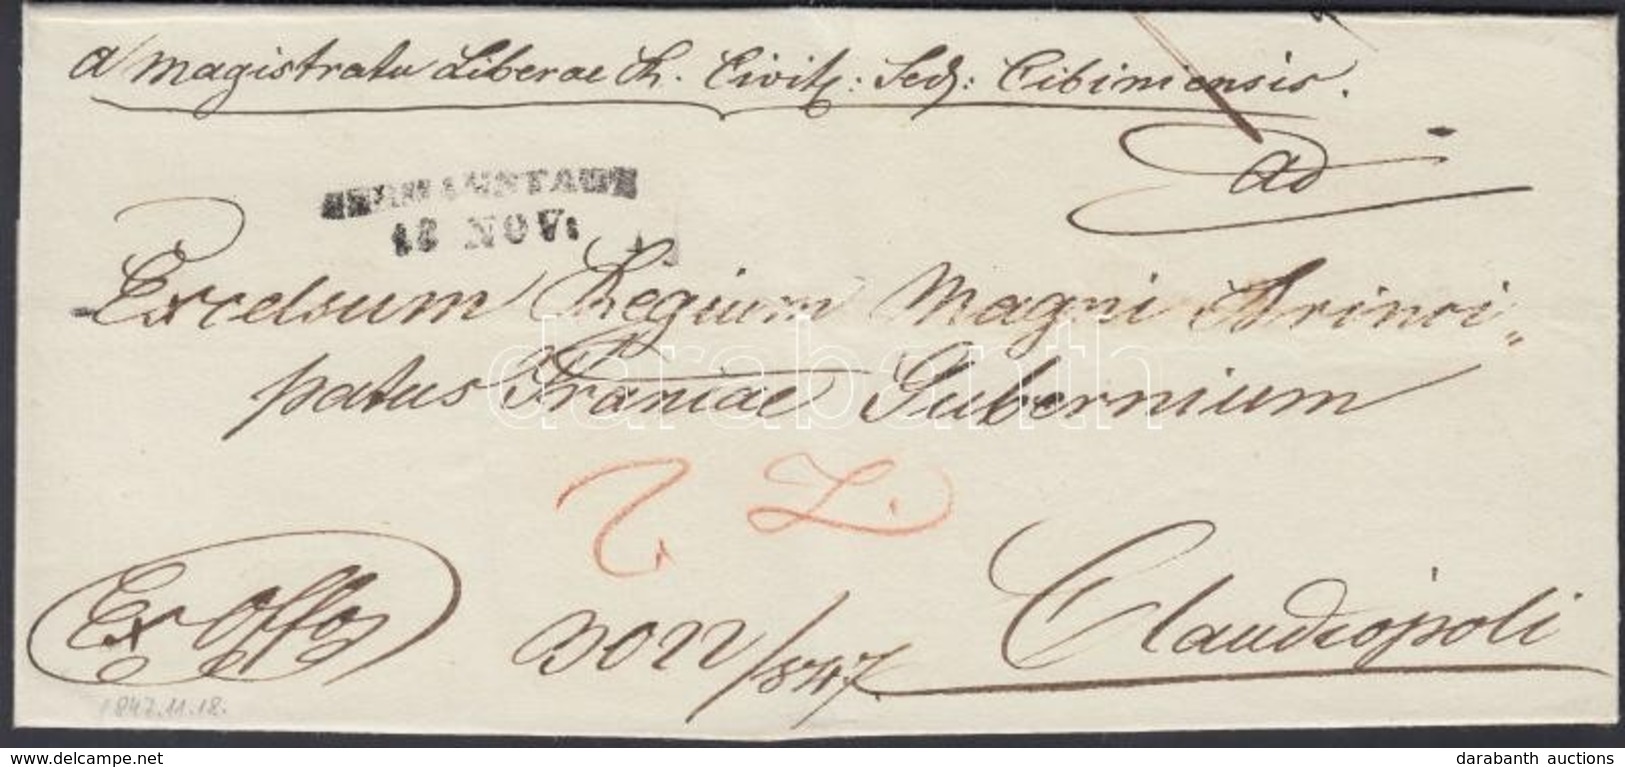 a Magistratu Liberae R. Civit: Sed: Cibiniensis.
ad
HERMANSTADT
18 NOV:
Excelsum Regium Magni Princi„
patus Traniae Gubernium
Z.
Ex Offo
3022/847.
Claudiopoli
1847.11.18.
darabanth
darabanth auctions
www.delcampe.net